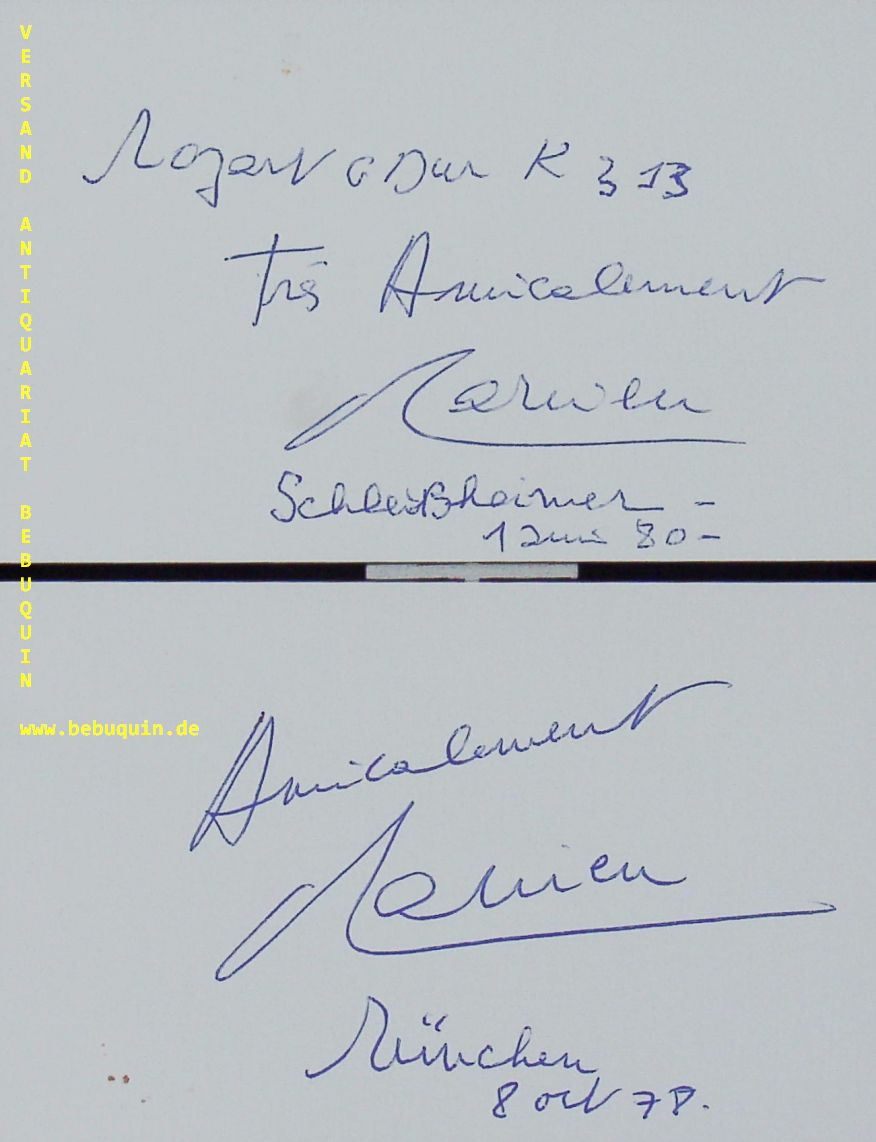 VERSAND ANTIQUARIAT BEBUQUIN
www.bebuquin.de
Mozart G Dur K 313
Très Amicalement
Schleißheimer -
1 Juni 80-
Amicalement
München
8 oct 78.